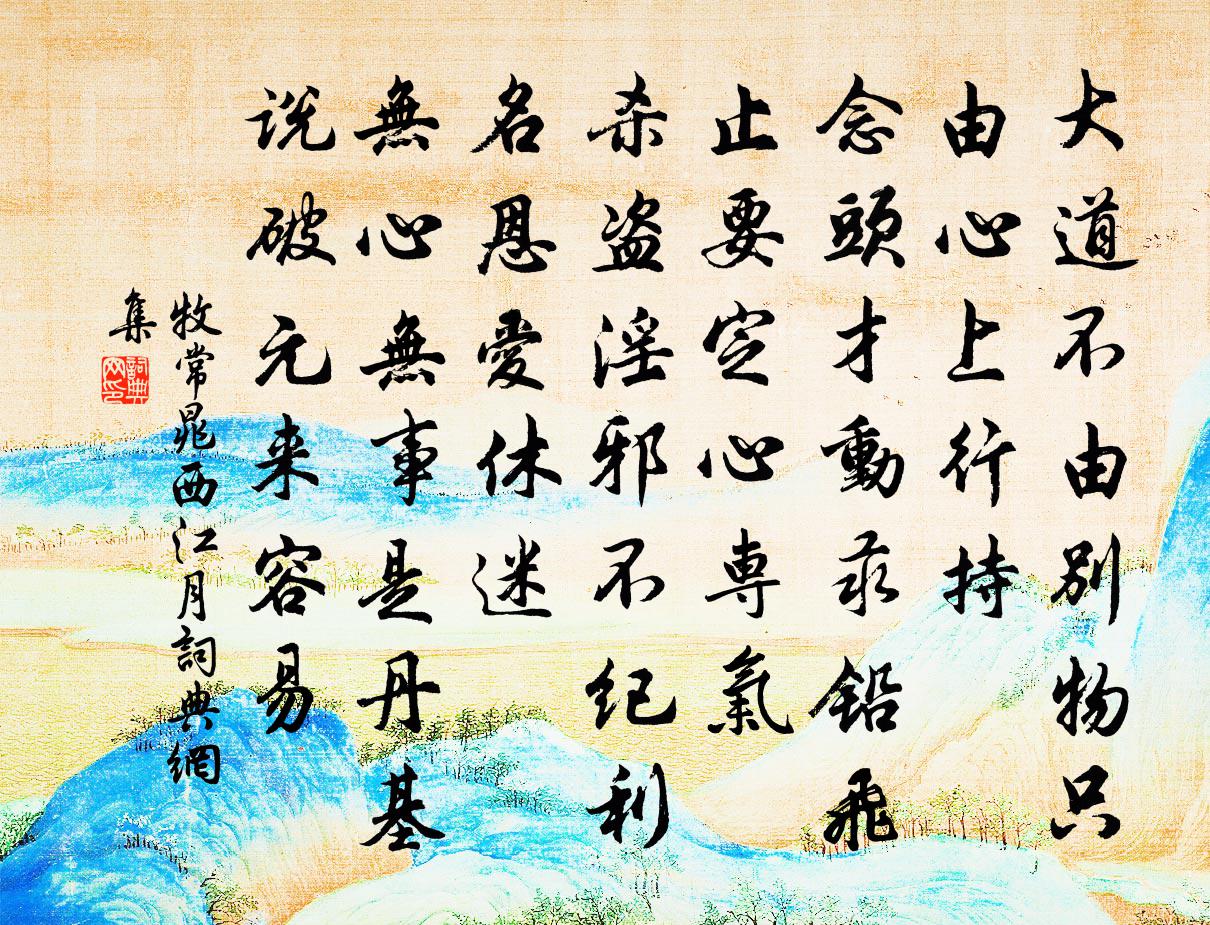 大道不由别物只
由心上行持
念頭才動汞鉛飛
止要定心専氣
杀盗淫邪不纪利
名恩愛休迷
無心無事是丹基
说破元来容易
牧常晁西江月詞典網
集
詞典網印